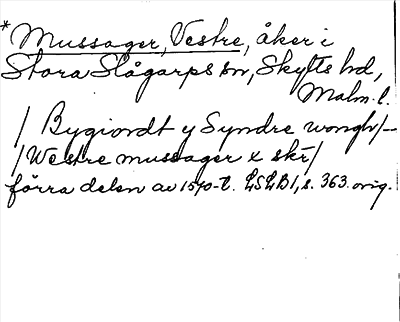 * Mussager, Vestre, åker i
Stora Slågarps sn, Skytts hd,
Malm. l.
/ Bygiordt y Syndre wongh/—
/Westre mussager x skr/
förra delen av 1570-t. LSLB1, s. 363. orig.